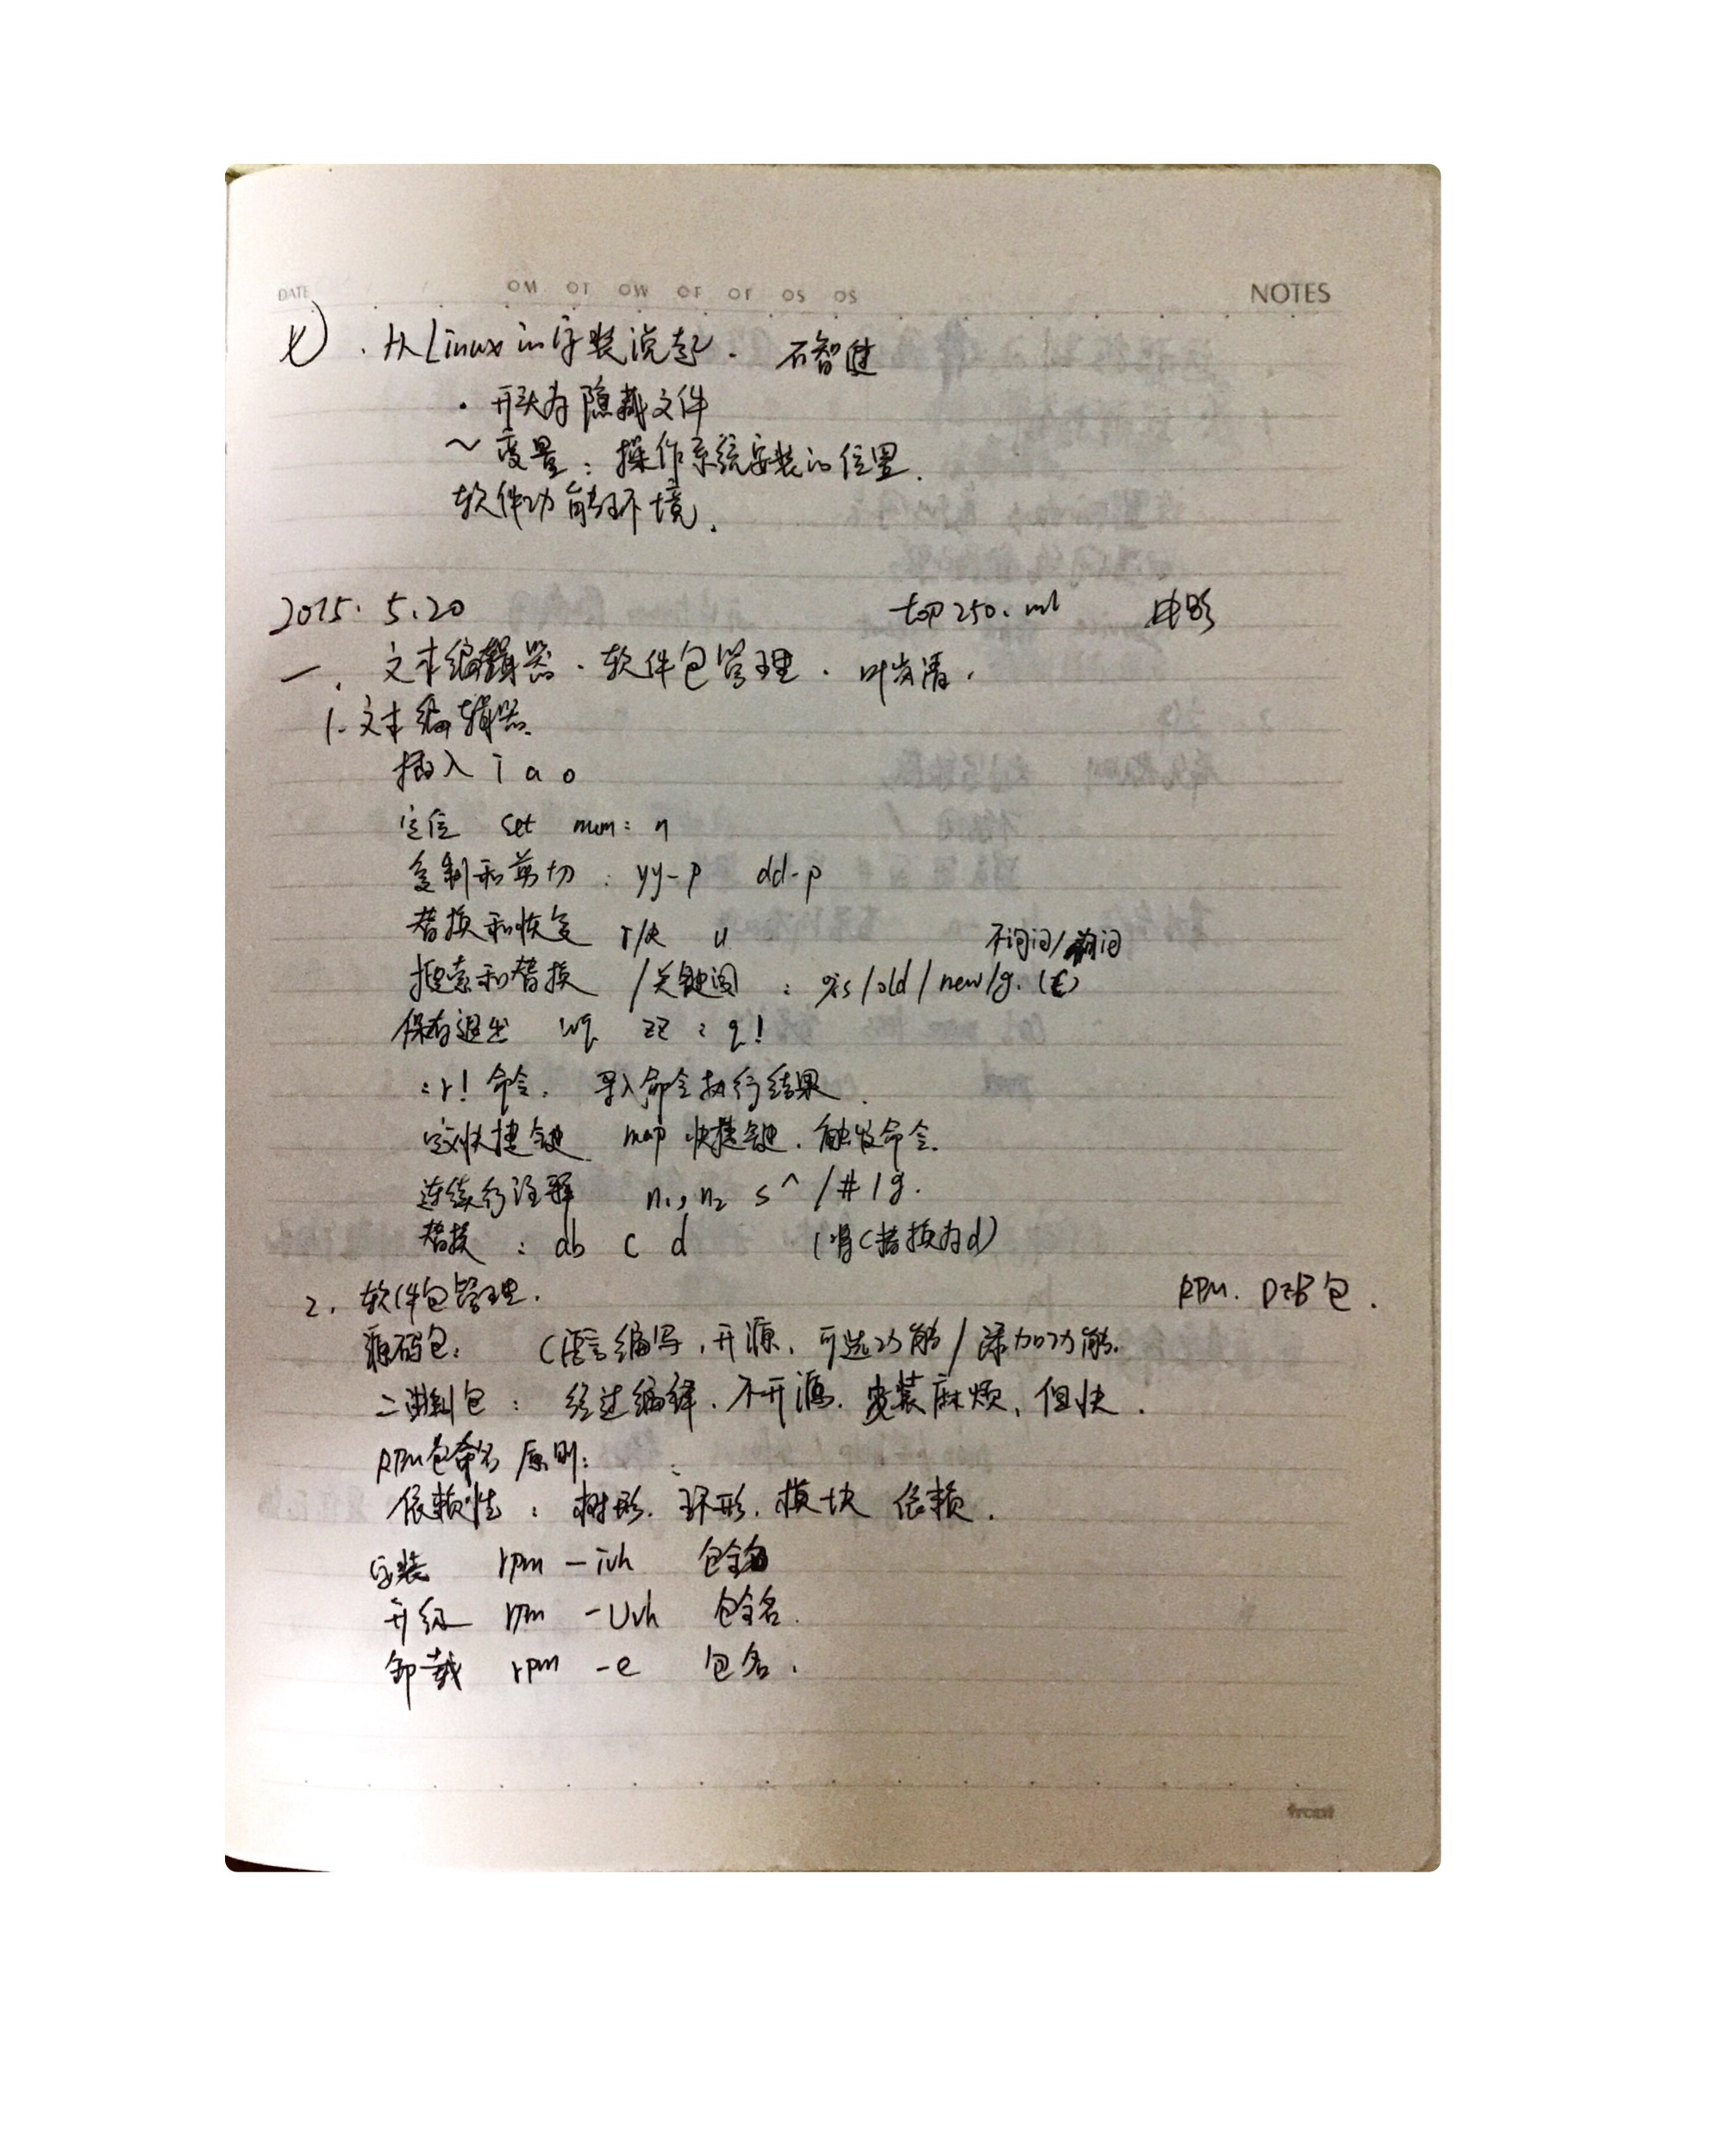 DATE OM OT OW OT OF OS OS NOTES
七). 从Linux的安装说起. 石智
. 开头为隐藏文件
~ 变量: 操作系统安装的位置.
软件功能环境.
2015. 5.20 top 250. ml 电影
一. 文本编辑器. 软件包管理. 叶
1. 文本编辑器.
插入 i a o
定位 set num: n
复制和剪切: yy-p dd-p
替换和恢复 r/R u 不询问/询问
搜索和替换 /关键词 : %s/old/new/g. (c)
保存退出 wq ZZ :q!
:r! 命令. 导入命令执行结果.
定义快捷键 map 快捷键. 触发命令.
连续行注释 n1,n2 s^/#/g.
替换 : ab c d (将c替换为d)
2. 软件包管理. RPM. DEB包.
源码包: C语言编写, 开源, 可选功能/添加功能.
二进制包: 经过编译. 不开源. 安装麻烦, 但快.
RPM包命名原则:
依赖性: 树形. 环形. 模块 依赖.
安装 rpm -ivh 包全名
升级 rpm -Uvh 包全名.
卸载 rpm -e 包名.
front